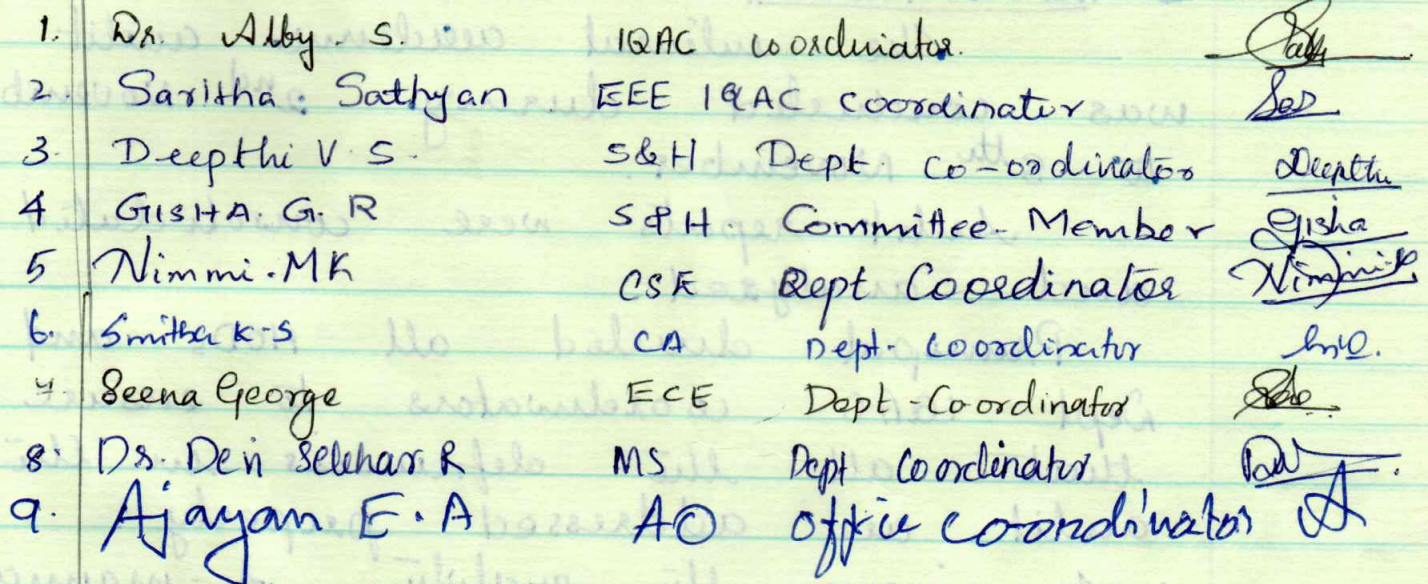 1. Dr. Alby. S. IQAC coordinator.
2 Saritha Sathyan EEE IQAC coordinator
3. Deepthi V.S. S&H Dept co-ordinator Deepthi
4 GISHA. G. R S&H Committee Member Gisha
5 Nimmi.MK CSE Dept Coordinator Nimmi
6. Smitha K.S CA Dept. coordinator
7. Seena George ECE Dept-Coordinator
8. Dr. Devi Sekhar R MS Dept Coordinator
9. Ajayan E.A AO office coordinator A